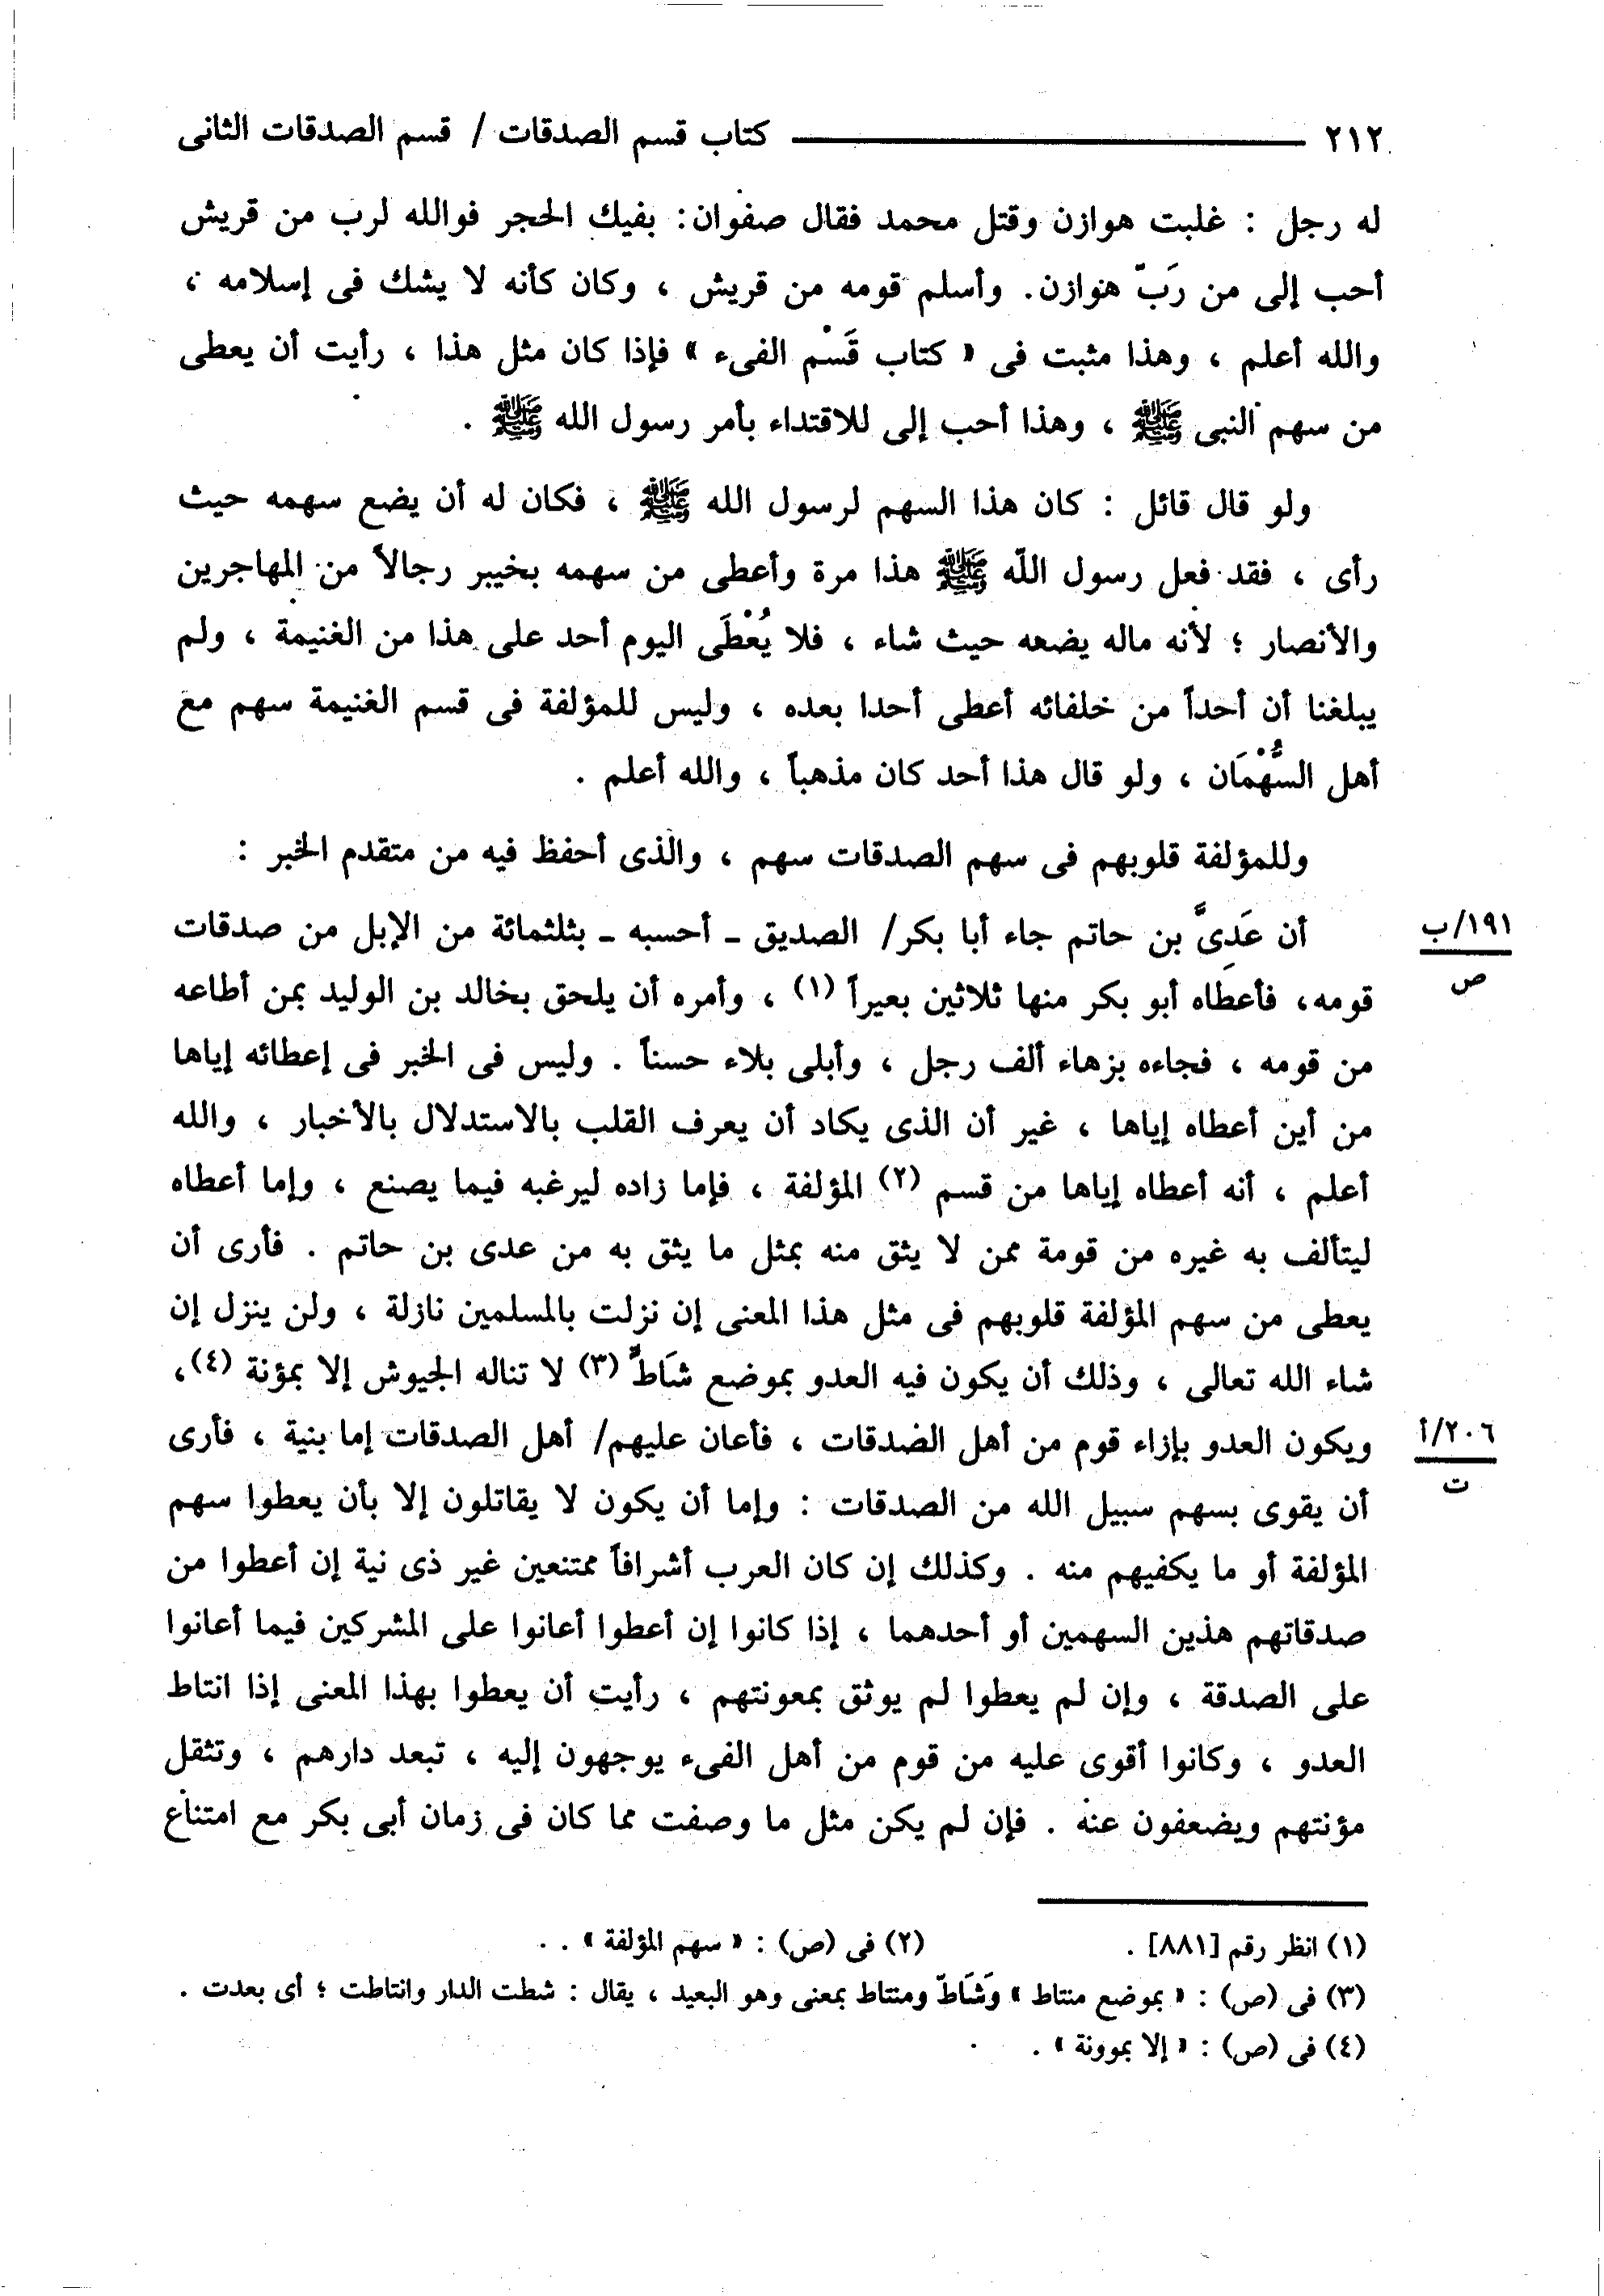 ٢١٢ ــــــــــــــــ كتاب قسم الصدقات / قسم الصدقات الثانى
له رجل : غلبت هوازن وقتل محمد فقال صفوان: بفيك الحجر فوالله لرب من قريش
أحب إلى من رَبّ هوازن. وأسلم قومه من قريش ، وكان كأنه لا يشك فى إسلامه ،
والله أعلم ، وهذا مثبت فى « كتاب قَسْم الفىء » فإذا كان مثل هذا ، رأيت أن يعطى
من سهم النبى ﷺ ، وهذا أحب إلى للاقتداء بأمر رسول الله ﷺ .
ولو قال قائل : كان هذا السهم لرسول الله ﷺ ، فكان له أن يضع سهمه حيث
رأى ، فقد فعل رسول الله ﷺ هذا مرة وأعطى من سهمه بخيبر رجالاً من المهاجرين
والأنصار ؛ لأنه ماله يضعه حيث شاء ، فلا يُعْطَى اليوم أحد على هذا من الغنيمة ، ولم
يبلغنا أن أحداً من خلفائه أعطى أحدا بعده ، وليس للمؤلفة فى قسم الغنيمة سهم مع
أهل السُّهْمَان ، ولو قال هذا أحد كان مذهباً ، والله أعلم .
وللمؤلفة قلوبهم فى سهم الصدقات سهم ، والذى أحفظ فيه من متقدم الخبر :
أن عَدِىَّ بن حاتم جاء أبا بكر/ الصديق ـ أحسبه ـ بثلثمائة من الإبل من صدقات
١٩١/ب
ص
قومه، فأعطاه أبو بكر منها ثلاثين بعيراً (١) ، وأمره أن يلحق بخالد بن الوليد بمن أطاعه
من قومه ، فجاءه بزهاء ألف رجل ، وأبلى بلاء حسناً . وليس فى الخبر فى إعطائه إياها
من أين أعطاه إياها ، غير أن الذى يكاد أن يعرف القلب بالاستدلال بالأخبار ، والله
أعلم ، أنه أعطاه إياها من قسم (٢) المؤلفة ، فإما زاده ليرغبه فيما يصنع ، وإما أعطاه
ليتألف به غيره من قومة ممن لا يثق منه بمثل ما يثق به من عدى بن حاتم . فأرى أن
يعطى من سهم المؤلفة قلوبهم فى مثل هذا المعنى إن نزلت بالمسلمين نازلة ، ولن ينزل إن
شاء الله تعالى ، وذلك أن يكون فيه العدو بموضع شَاطٍّ (٣) لا تناله الجيوش إلا بمؤنة (٤)،
ويكون العدو بإزاء قوم من أهل الصدقات ، فأعان عليهم/ أهل الصدقات إما بنية ، فأرى
٢٠٦/أ
ت
أن يقوى بسهم سبيل الله من الصدقات : وإما أن يكون لا يقاتلون إلا بأن يعطوا سهم
المؤلفة أو ما يكفيهم منه . وكذلك إن كان العرب أشرافاً ممتنعين غير ذى نية إن أعطوا من
صدقاتهم هذين السهمين أو أحدهما ، إذا كانوا إن أعطوا أعانوا على المشركين فيما أعانوا
على الصدقة ، وإن لم يعطوا لم يوثق بمعونتهم ، رأيت أن يعطوا بهذا المعنى إذا انتاط
العدو ، وكانوا أقوى عليه من قوم من أهل الفىء يوجهون إليه ، تبعد دارهم ، وتثقل
مؤنتهم ويضعفون عنه . فإن لم يكن مثل ما وصفت مما كان فى زمان أبى بكر مع امتناع
(١) انظر رقم [٨٨١] .
(٢) فى (ص) : « سهم المؤلفة » .
(٣) فى (ص) : « بموضع منتاط » وَشَاطّ ومنتاط بمعنى وهو البعيد ، يقال : شطت الدار وانتاطت ؛ أى بعدت .
(٤) فى (ص) : « إلا بموونة » .